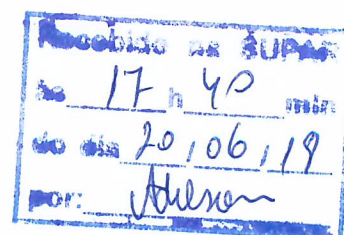 Recebido na SUPAR
às 17 h 40 min
do dia 20/06/19
por: